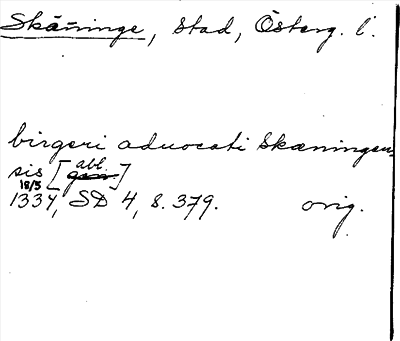 Skäninge, stad, Österg. l.
birgeri aduocati Skæningen-
sis [abl.]
18/5
1334, SD 4, s. 379. orig.